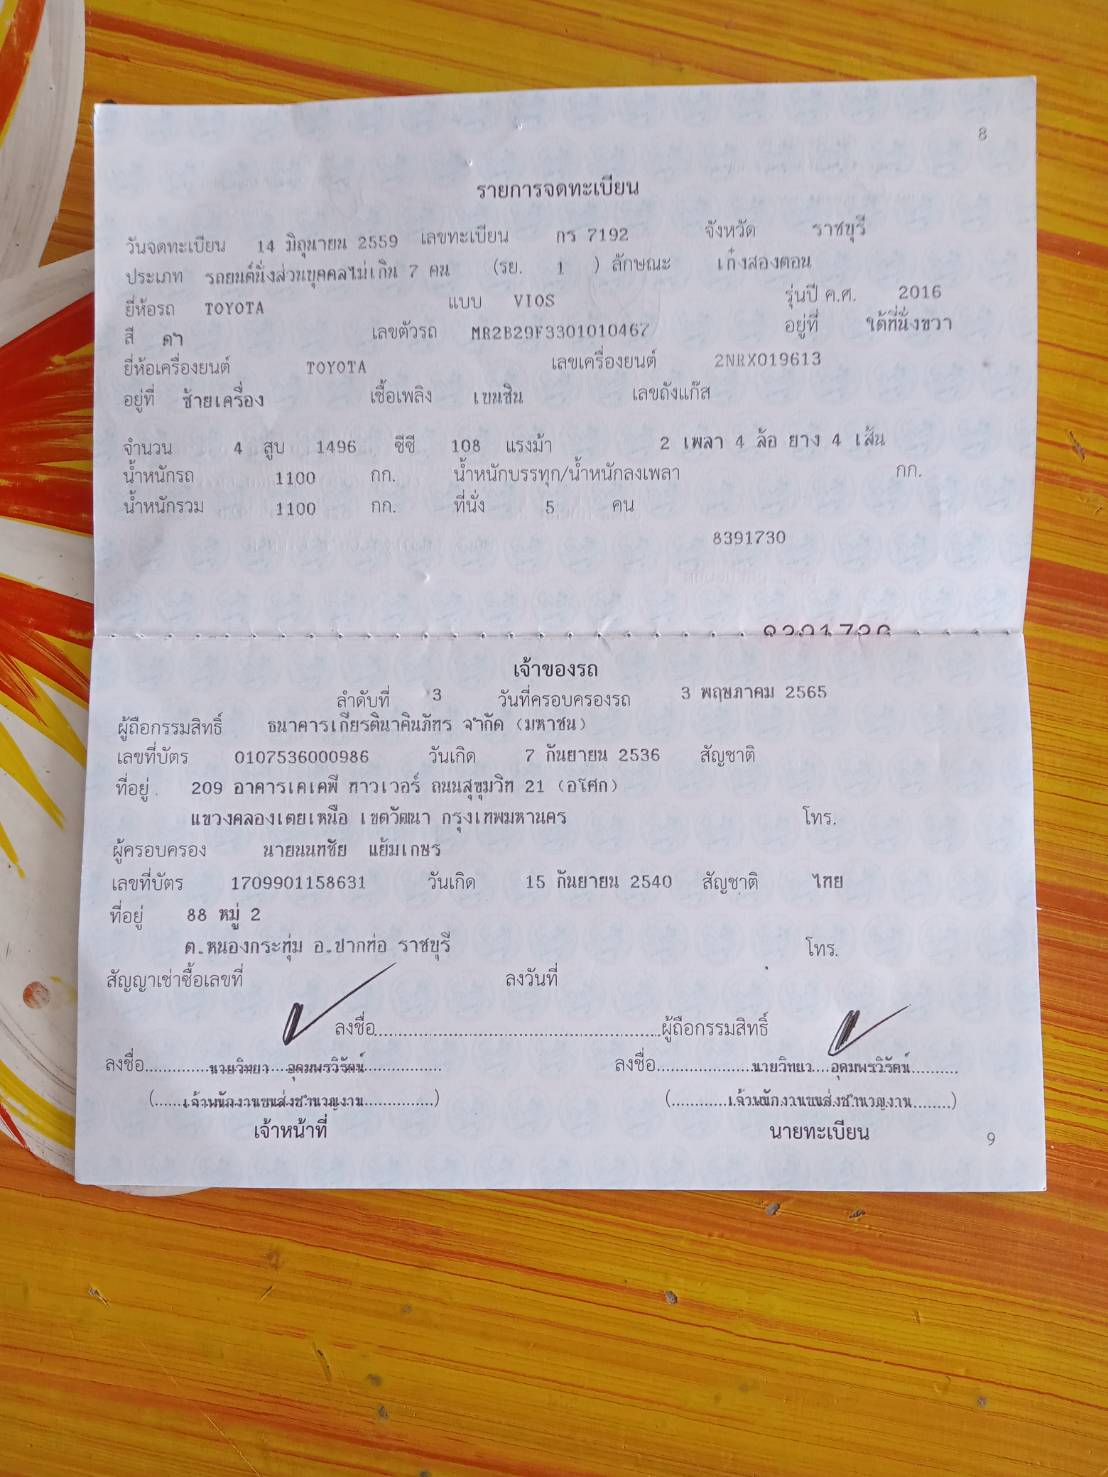 8
รายการจดทะเบียน
วันจดทะเบียน 14 มิถุนายน 2559 เลขทะเบียน กร 7192 จังหวัด ราชบุรี
ประเภท รถยนต์นั่งส่วนบุคคลไม่เกิน 7 คน (รย. 1 ) ลักษณะ เก๋งสองตอน
ยี่ห้อรถ TOYOTA แบบ VIOS รุ่นปี ค.ศ. 2016
สี ดำ เลขตัวรถ MR2B29F3301010467 อยู่ที่ ใต้ที่นั่งขวา
ยี่ห้อเครื่องยนต์ TOYOTA เลขเครื่องยนต์ 2NRX019613
อยู่ที่ ซ้ายเครื่อง เชื้อเพลิง เบนซิน เลขถังแก๊ส
จำนวน 4 สูบ 1496 ซีซี 108 แรงม้า 2 เพลา 4 ล้อ ยาง 4 เส้น
น้ำหนักรถ 1100 กก. น้ำหนักบรรทุก/น้ำหนักลงเพลา กก.
น้ำหนักรวม 1100 กก. ที่นั่ง 5 คน
8391730
เจ้าของรถ
ลำดับที่ 3 วันที่ครอบครองรถ 3 พฤษภาคม 2565
ผู้ถือกรรมสิทธิ์ ธนาคารเกียรตินาคินภัทร จำกัด (มหาชน)
เลขที่บัตร 0107536000986 วันเกิด 7 กันยายน 2536 สัญชาติ
ที่อยู่ 209 อาคารเคเคพี ทาวเวอร์ ถนนสุขุมวิท 21 (อโศก)
แขวงคลองเตยเหนือ เขตวัฒนา กรุงเทพมหานคร โทร.
ผู้ครอบครอง นายนนทชัย แย้มเกษร
เลขที่บัตร 1709901158631 วันเกิด 15 กันยายน 2540 สัญชาติ ไทย
ที่อยู่ 88 หมู่ 2
ต.หนองกระทุ่ม อ.ปากท่อ ราชบุรี โทร.
สัญญาเช่าซื้อเลขที่ ลงวันที่
ลงชื่อ............................................ผู้ถือกรรมสิทธิ์
ลงชื่อ............นายวิทยา....อุดมพรวิรัตน์............... ลงชื่อ..................นายวิทยา....อุดมพรวิรัตน์..........
(......เจ้าพนักงานขนส่งชำนาญงาน...............) (............เจ้าพนักงานขนส่งชำนาญงาน........)
เจ้าหน้าที่ นายทะเบียน
9